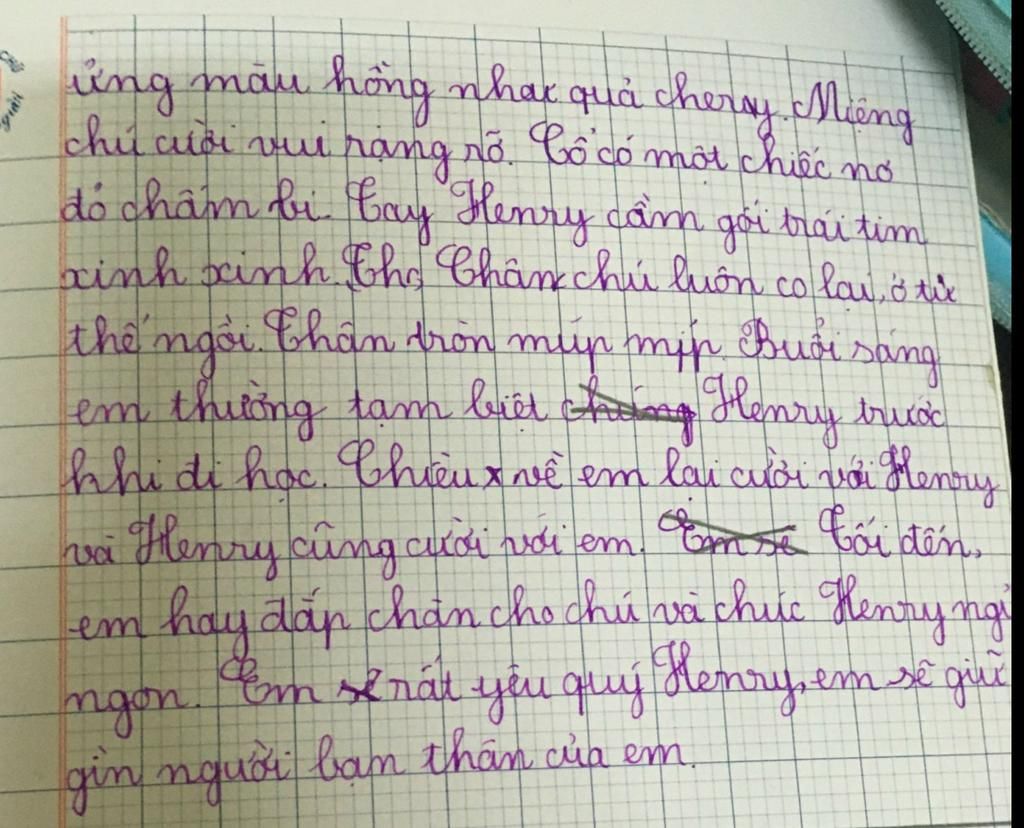 ửng màu hồng nhak quả cheray. Miệng
chú cười vui rạng rỡ. Cổ có một chiếc nơ
đỏ chấm bi. Tay Henry cầm gối trái tim
xinh xinh. Chân chú luôn co lại, ở tư
thế ngồi. Thân tròn múp míp. Buổi sáng
em thường tạm biệt Henry trước
khi đi học. Chiều về em lại cười với Henry
và Henry cũng cười với em. Tối đến,
em hay đắp chăn cho chú và chúc Henry ngủ
ngon. Em rất yêu quý Henry, em sẽ giữ
gìn người bạn thân của em.